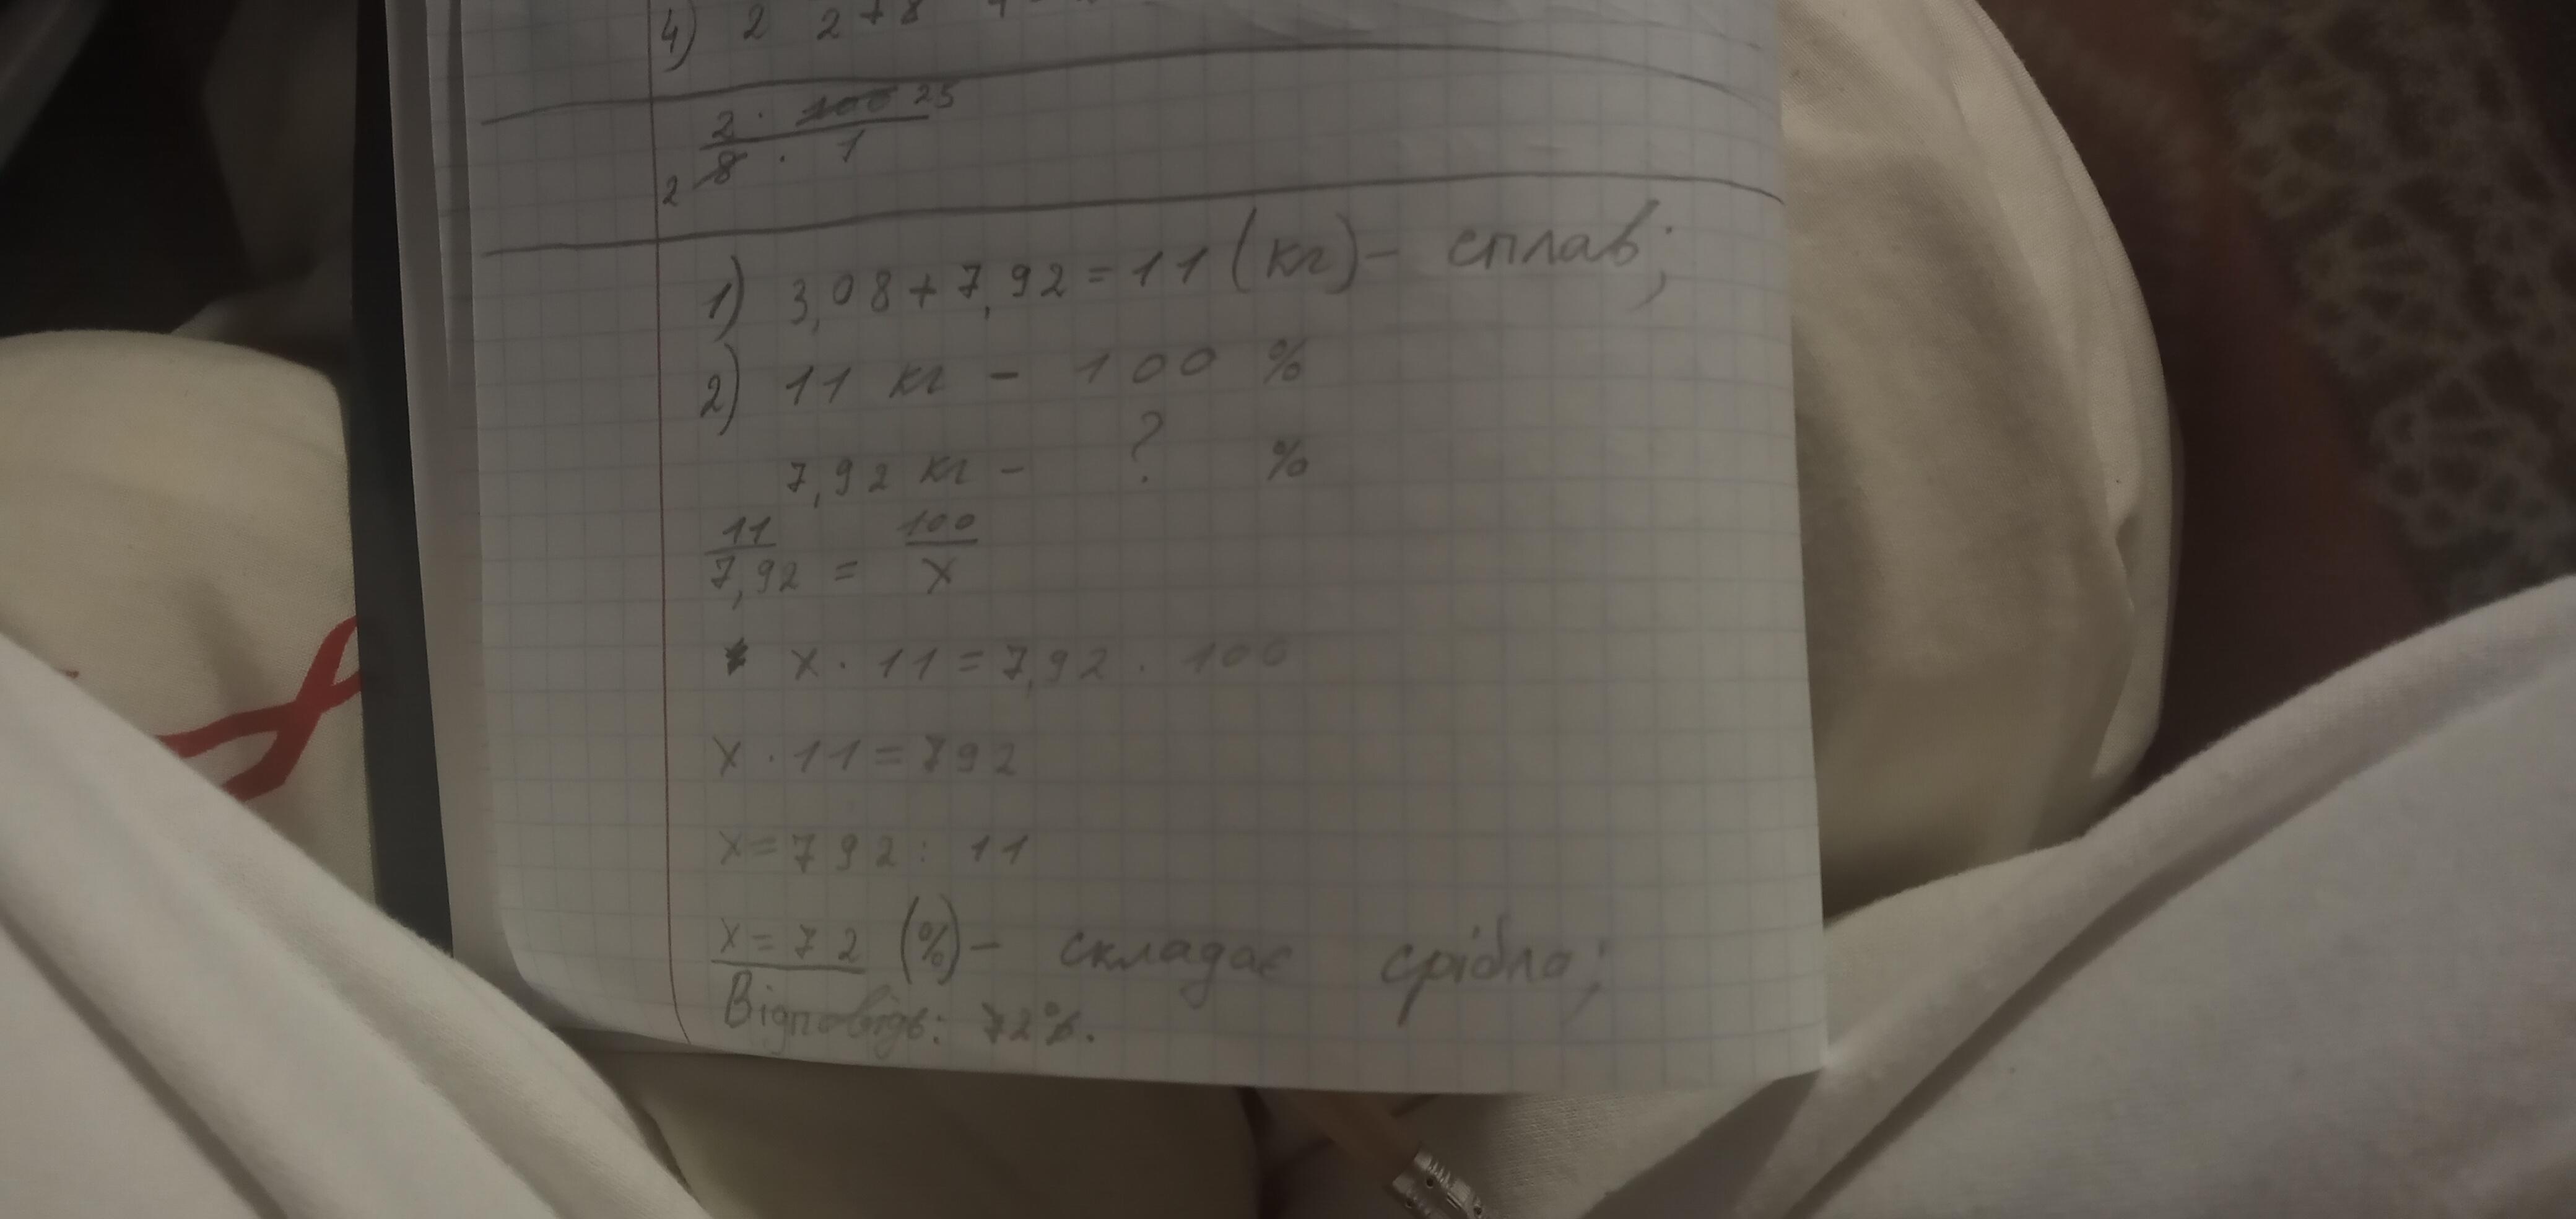 4) 2 2+8
2 · 100 25
2 8 · 1
1) 3,08+7,92=11 (кг) – сплав;
2) 11 кг – 100 %
7,92 кг – ? %
11 100
7,92 = x
x · 11 = 7,92 · 100
x · 11 = 792
x = 792 : 11
x = 72 (%) – складає срібло;
Відповідь: 72%.